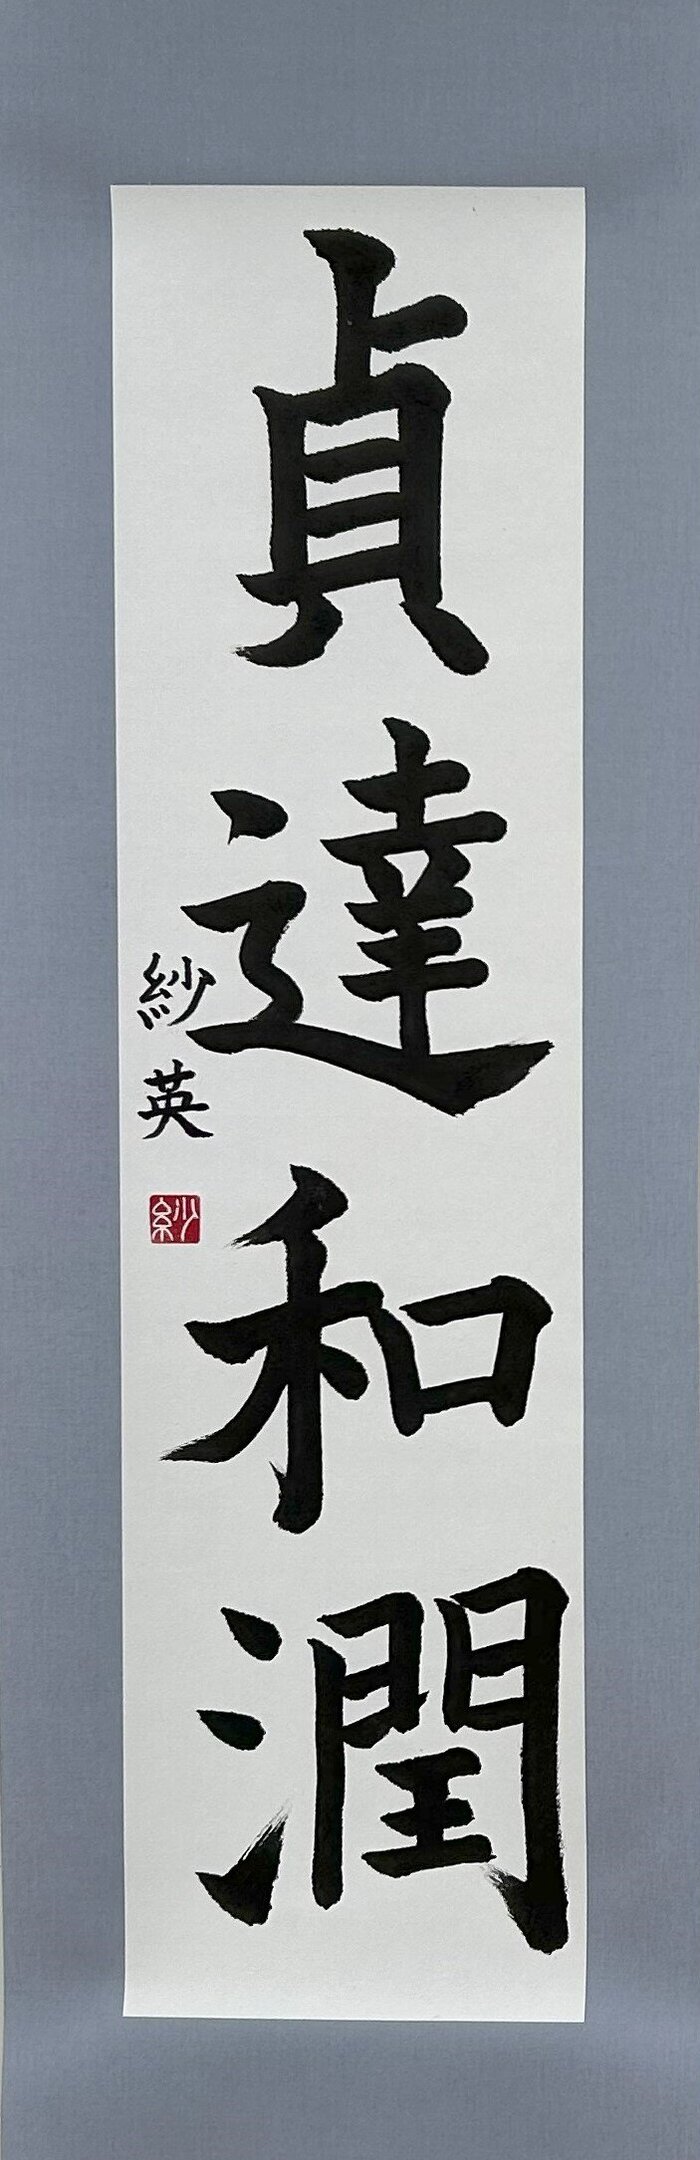 貞達和潤
紗英
紗